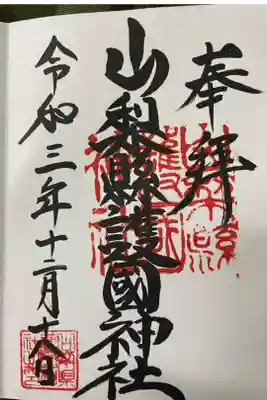 奉拜
山梨縣護國神社
令和三年十二月十八日